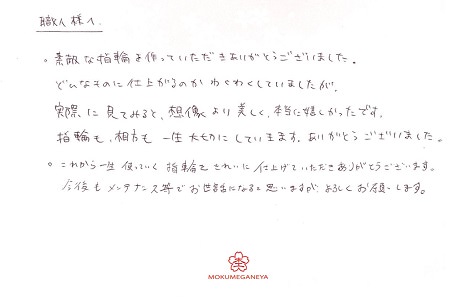 職人様へ.
。素敵な指輪を作っていただきありがとうございました.
どんなものに仕上がるのかわくわくしていましたが.
実際に見てみると、想像より美しく、本当に嬉しかったです。
指輪も、相方も一生大切にしていきます。ありがとうございました。
。これから一生使っていく指輪をきれいに仕上げていただきありがとうございます。
今後もメンテナンス等でお世話になると思いますが、よろしくお願いします。
MOKUMEGANEYA